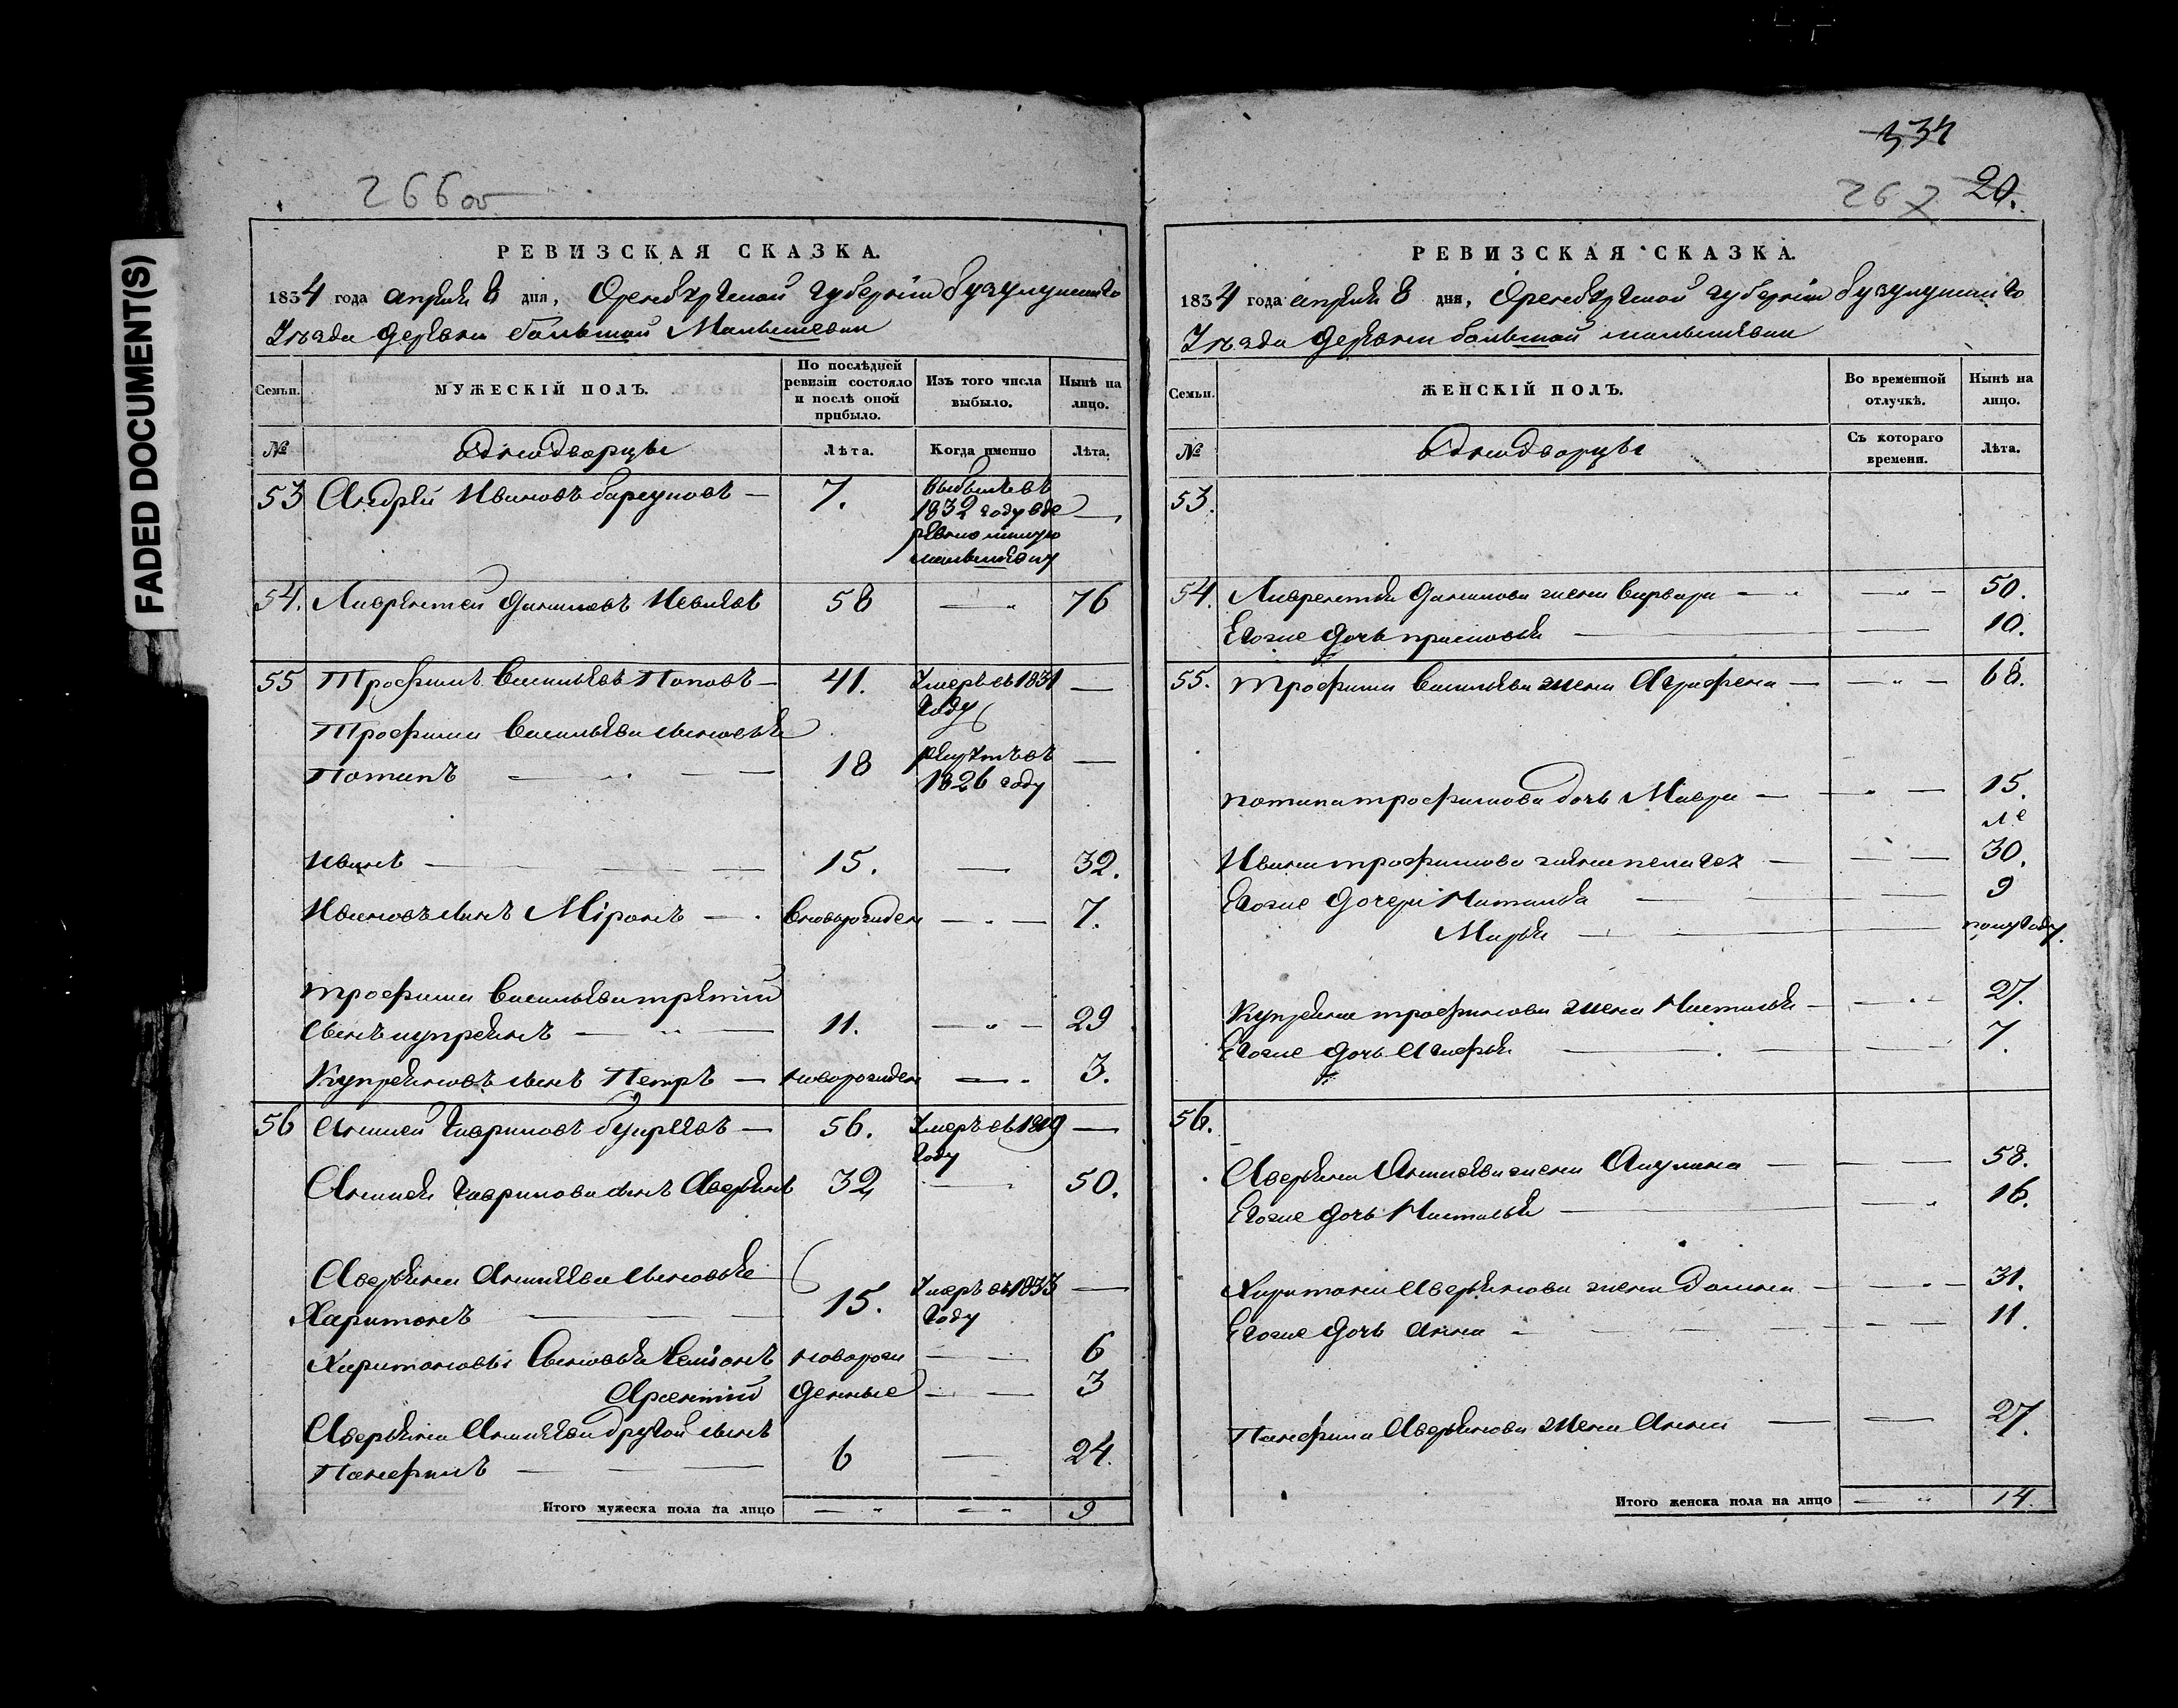 FADED DOCUMENT(S)
266об
РЕВИЗСКАЯ СКАЗКА.
1834 года апреля 8 дня, Оренбургской губернии бузулуцкого
Уезда деревни большой Малышевки
Семьи.
МУЖЕСКІЙ ПОЛЪ.
По послѣдней ревизіи состояло и послѣ оной прибыло.
Изъ того числа выбыло.
Нынѣ на лицо.
№
Однодворцы
Лѣта.
Когда именно
Лѣта.
53 Андрей Ивановъ 7. —
1832 году в де
ревню
малышевку
54. Лаврентей Даниловъ 58 — 76
55 Трофимъ Васильевъ Поповъ — 41. Умеръ въ 1831 —
году
Трофима Васильева сыновья
Потапъ — 18 рекрутъ въ —
1826 году
Иванъ — 15. — 32.
Ивановъ сынъ Мiронъ — вновьрожден — 7.
трофима Васильева третiй
сынъ купреянъ — 11. — 29
Купреяновъ сынъ Петръ — новорожден — 3.
56 Гавриловъ — 56. Умеръ въ 1819 —
году
Гаврилова сынъ Аверьянъ 32 — 50.
Аверьяна сыновья
Харитонъ — 15. Умеръ въ 1833 —
году
Харитоновы Сыновья новорож — 6
денные — 3
Аверьяна другой сынъ
Панфилъ — 6 — 24.
Итого мужеска пола на лицо — 9
534
267 20.
РЕВИЗСКАЯ СКАЗКА.
1834 года апреля 8 дня, Оренбургской губернии бузулуцкого
Уезда деревни большой малышевки
Семьи.
ЖЕНСКІЙ ПОЛЪ.
Во временной отлучкѣ.
Нынѣ на лицо.
№
Однодворцы
Съ котораго времени.
Лѣта.
53.
54. Лаврентья Данилова жена Варвара — 50.
Егоже дочь прасковья — 10.
55. Трофима Васильева жена Аграфена — 68.
потапа трофимова дочь Мавра — 15.
Ивана трофимова жена пелагея — 30.
Егоже дочери Наталья — 9
Марья — полугоду.
Купреяна трофимова жена Настасья — 27.
Егоже дочь — 7.
56.
Аверьяна жена Акулина — 58.
Егоже дочь Настасья — 16.
Харитона Аверьянова жена Домна — 31.
Егоже дочь анна — 11.
Панфила Аверьянова жена Анна — 27.
Итого женска пола на лицо — 14.